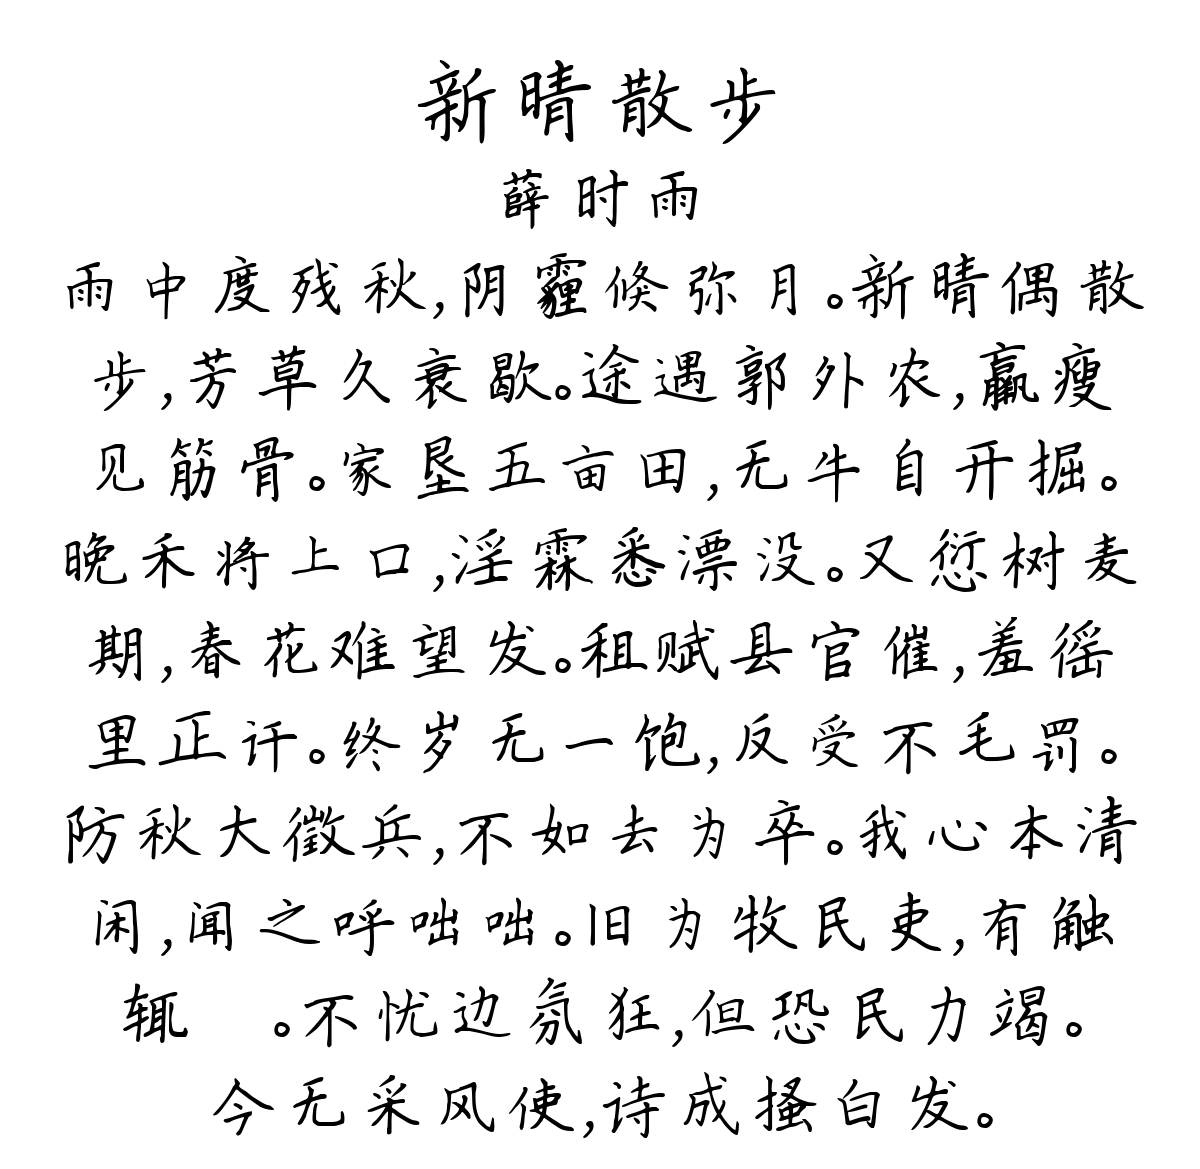 新晴散步
薛时雨
雨中度残秋,阴霾倏弥月。新晴偶散
步,芳草久衰歇。途遇郭外农,羸瘦
见筋骨。家垦五亩田,无牛自开掘。
晚禾将上口,淫霖悉漂没。又愆树麦
期,春花难望发。租赋县官催,羞徭
里正讦。终岁无一饱,反受不毛罚。
防秋大徵兵,不如去为卒。我心本清
闲,闻之呼咄咄。旧为牧民吏,有触
辄 。不忧边氛狂,但恐民力竭。
今无采风使,诗成搔白发。